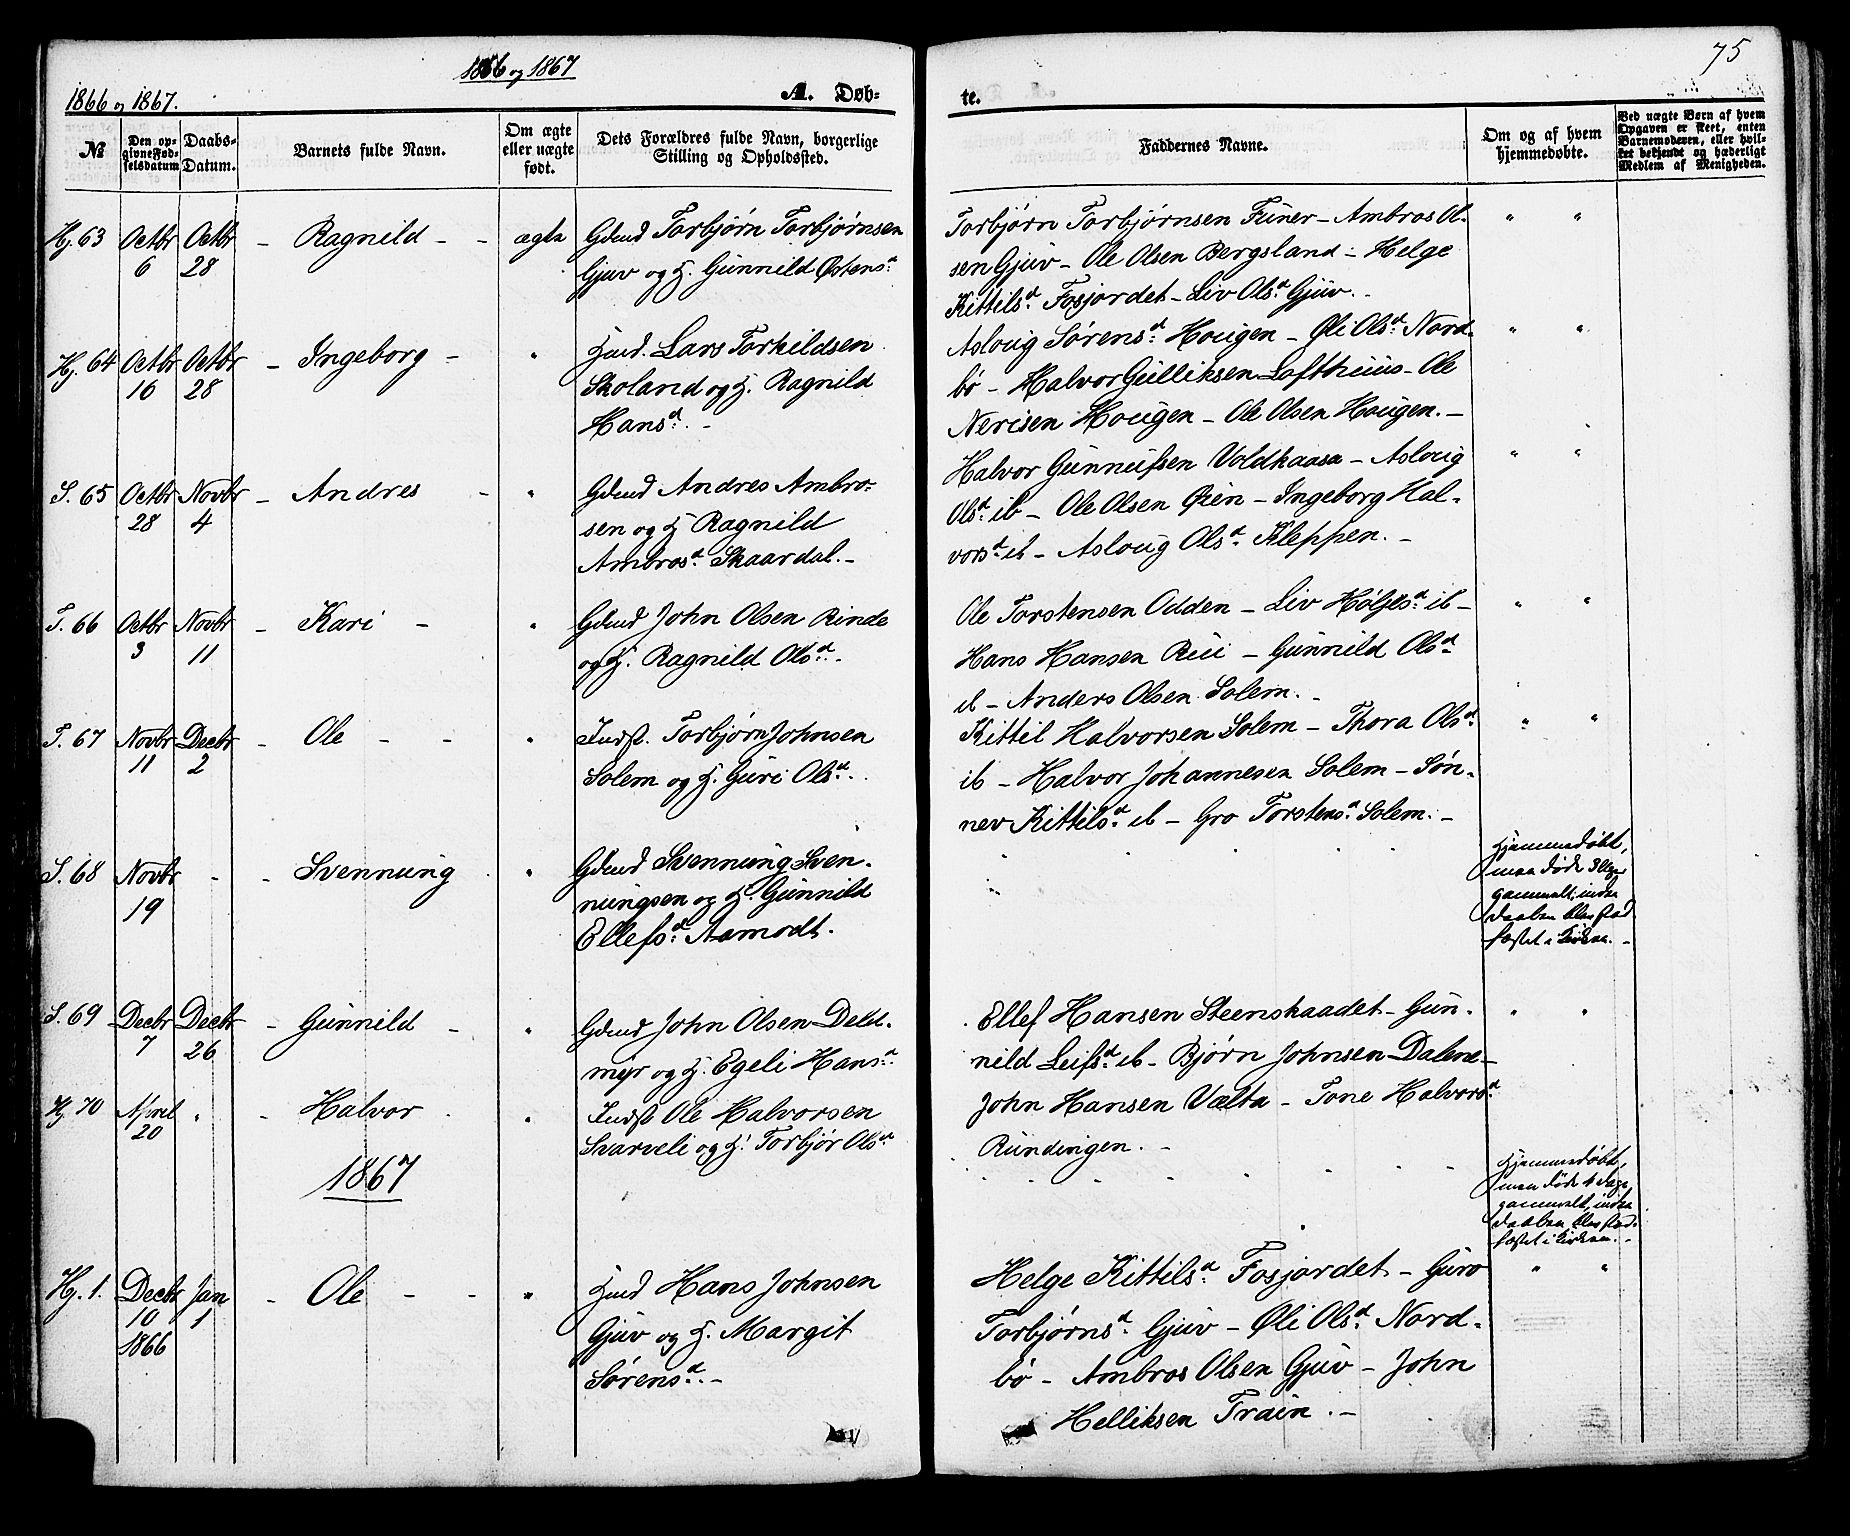 1866 og 1867
75
1866 og 1867.
A. Døb-
te.
№
Den op-
givne Fød-
selsdatum
Daabs-
Datum.
Barnets fulde Navn.
Om ægte
eller uægte
født.
Dets Forældres fulde Navn, borgerlige
Stilling og Opholdssted.
Faddernes Navne.
Om og af hvem
hjemmedøbte.
Ved uægte Børn af hvem
Opgaven er skeet, enten
Barnemoderen, eller hvil-
ket bekjendt og hæderligt
Medlem af Menigheden.
Hj. 63 Octbr 6 Octbr 28 - Ragnild - - ægte
Gdmd Torbjørn Torbjørnsen
Gjuv og H. Gunnild Østensd.
Torbjørn Torbjørnsen Funer - Ambros Ol-
sen Gjuv - Ole Olsen Bergsland - Helge
Kittilsd. Fosjordet - Liv Olsd. Gjuv. -
" "
Hj. 64 Octbr 16 Octbr 28 - Ingeborg - "
Hmd. Lars Torkildsen
Skoland og H. Ragnild
Hansd. -
Asloug Sørensd. Hougen - Øli Olsd. Nord-
bø - Halvor Gulliksen Lofthuus - Ole
Nerisen Hougen - Ole Olsen Hougen. -
" "
S. 65 Octbr 28 Novbr 4 - Andres - "
Gdmd Andres Ambro-
sen og H Ragnild
Ambrosd. Skaardal. -
Halvor Gunnufsen Voldkaasa - Asloug
Olsd. ib - Ole Olsen Øien - Ingeborg Hal-
vorsd. ib - Asloug Olsd. Kleppen. -
" "
T. 66 Octbr 3 Novbr 11 - Kari - "
Gdmd John Olsen Rinde
og H. Ragnild Olsd. -
Ole Torstensen Odden - Liv Høljesd. ib -
Hans Hansen Rui - Gunnild Olsd.
ib - Anders Olsen Solem. -
" "
T. 67 Novbr 11 Decbr 2 - Ole - - "
Indst. Torbjørn Johnsen
Solem og H. Guri Olsd.
Kittil Halvorsen Solem - Thora Olsd.
ib - Halvor Johannesen Solem - Søn-
nev Kittilsd. ib - Gro Torstensd. Solem. -
" "
S. 68 Novbr 19 - - Svennung "
Gdmd Svennung Sven-
nungsen og H. Gunnild
Ellefsd. Aamodt.
Hjemmedøbt,
men døde 3 Uger
gammelt, inden
Daaben blev stad-
fæstet i Kirken. -
S. 69 Decbr 7 Decbr 26 - Gunnild - "
Gdmd John Olsen Deld-
myr og H. Egeli Hansd.
Ellef Hansen Steenskaadet - Gun-
nild Leifsd. ib - Bjørn Johnsen Dalene -
John Hansen Vælta - Tone Halvorsd.
Rundingen. -
" "
Hj. 70 April 20 " - Halvor "
Indst Ole Halvorsen
Svarveli og H. Torbjør Olsd.
Hjemmedøbt,
men døde 4 Dage
gammelt, inden
Daaben blev stad-
fæstet i Kirken. -
1867
Hj. 1. Decbr 10 1866 Jan 1 - Ole - - "
Hmd Hans Johnsen
Gjuv og H. Margit
Sørensd. -
Helge Kittilsd. Fosjordet - Guro
Torbjørnsd. Gjuv - Øli Olsd. Nord-
bø - Ambros Olsen Gjuv - John
Helliksen Traen. -
" "